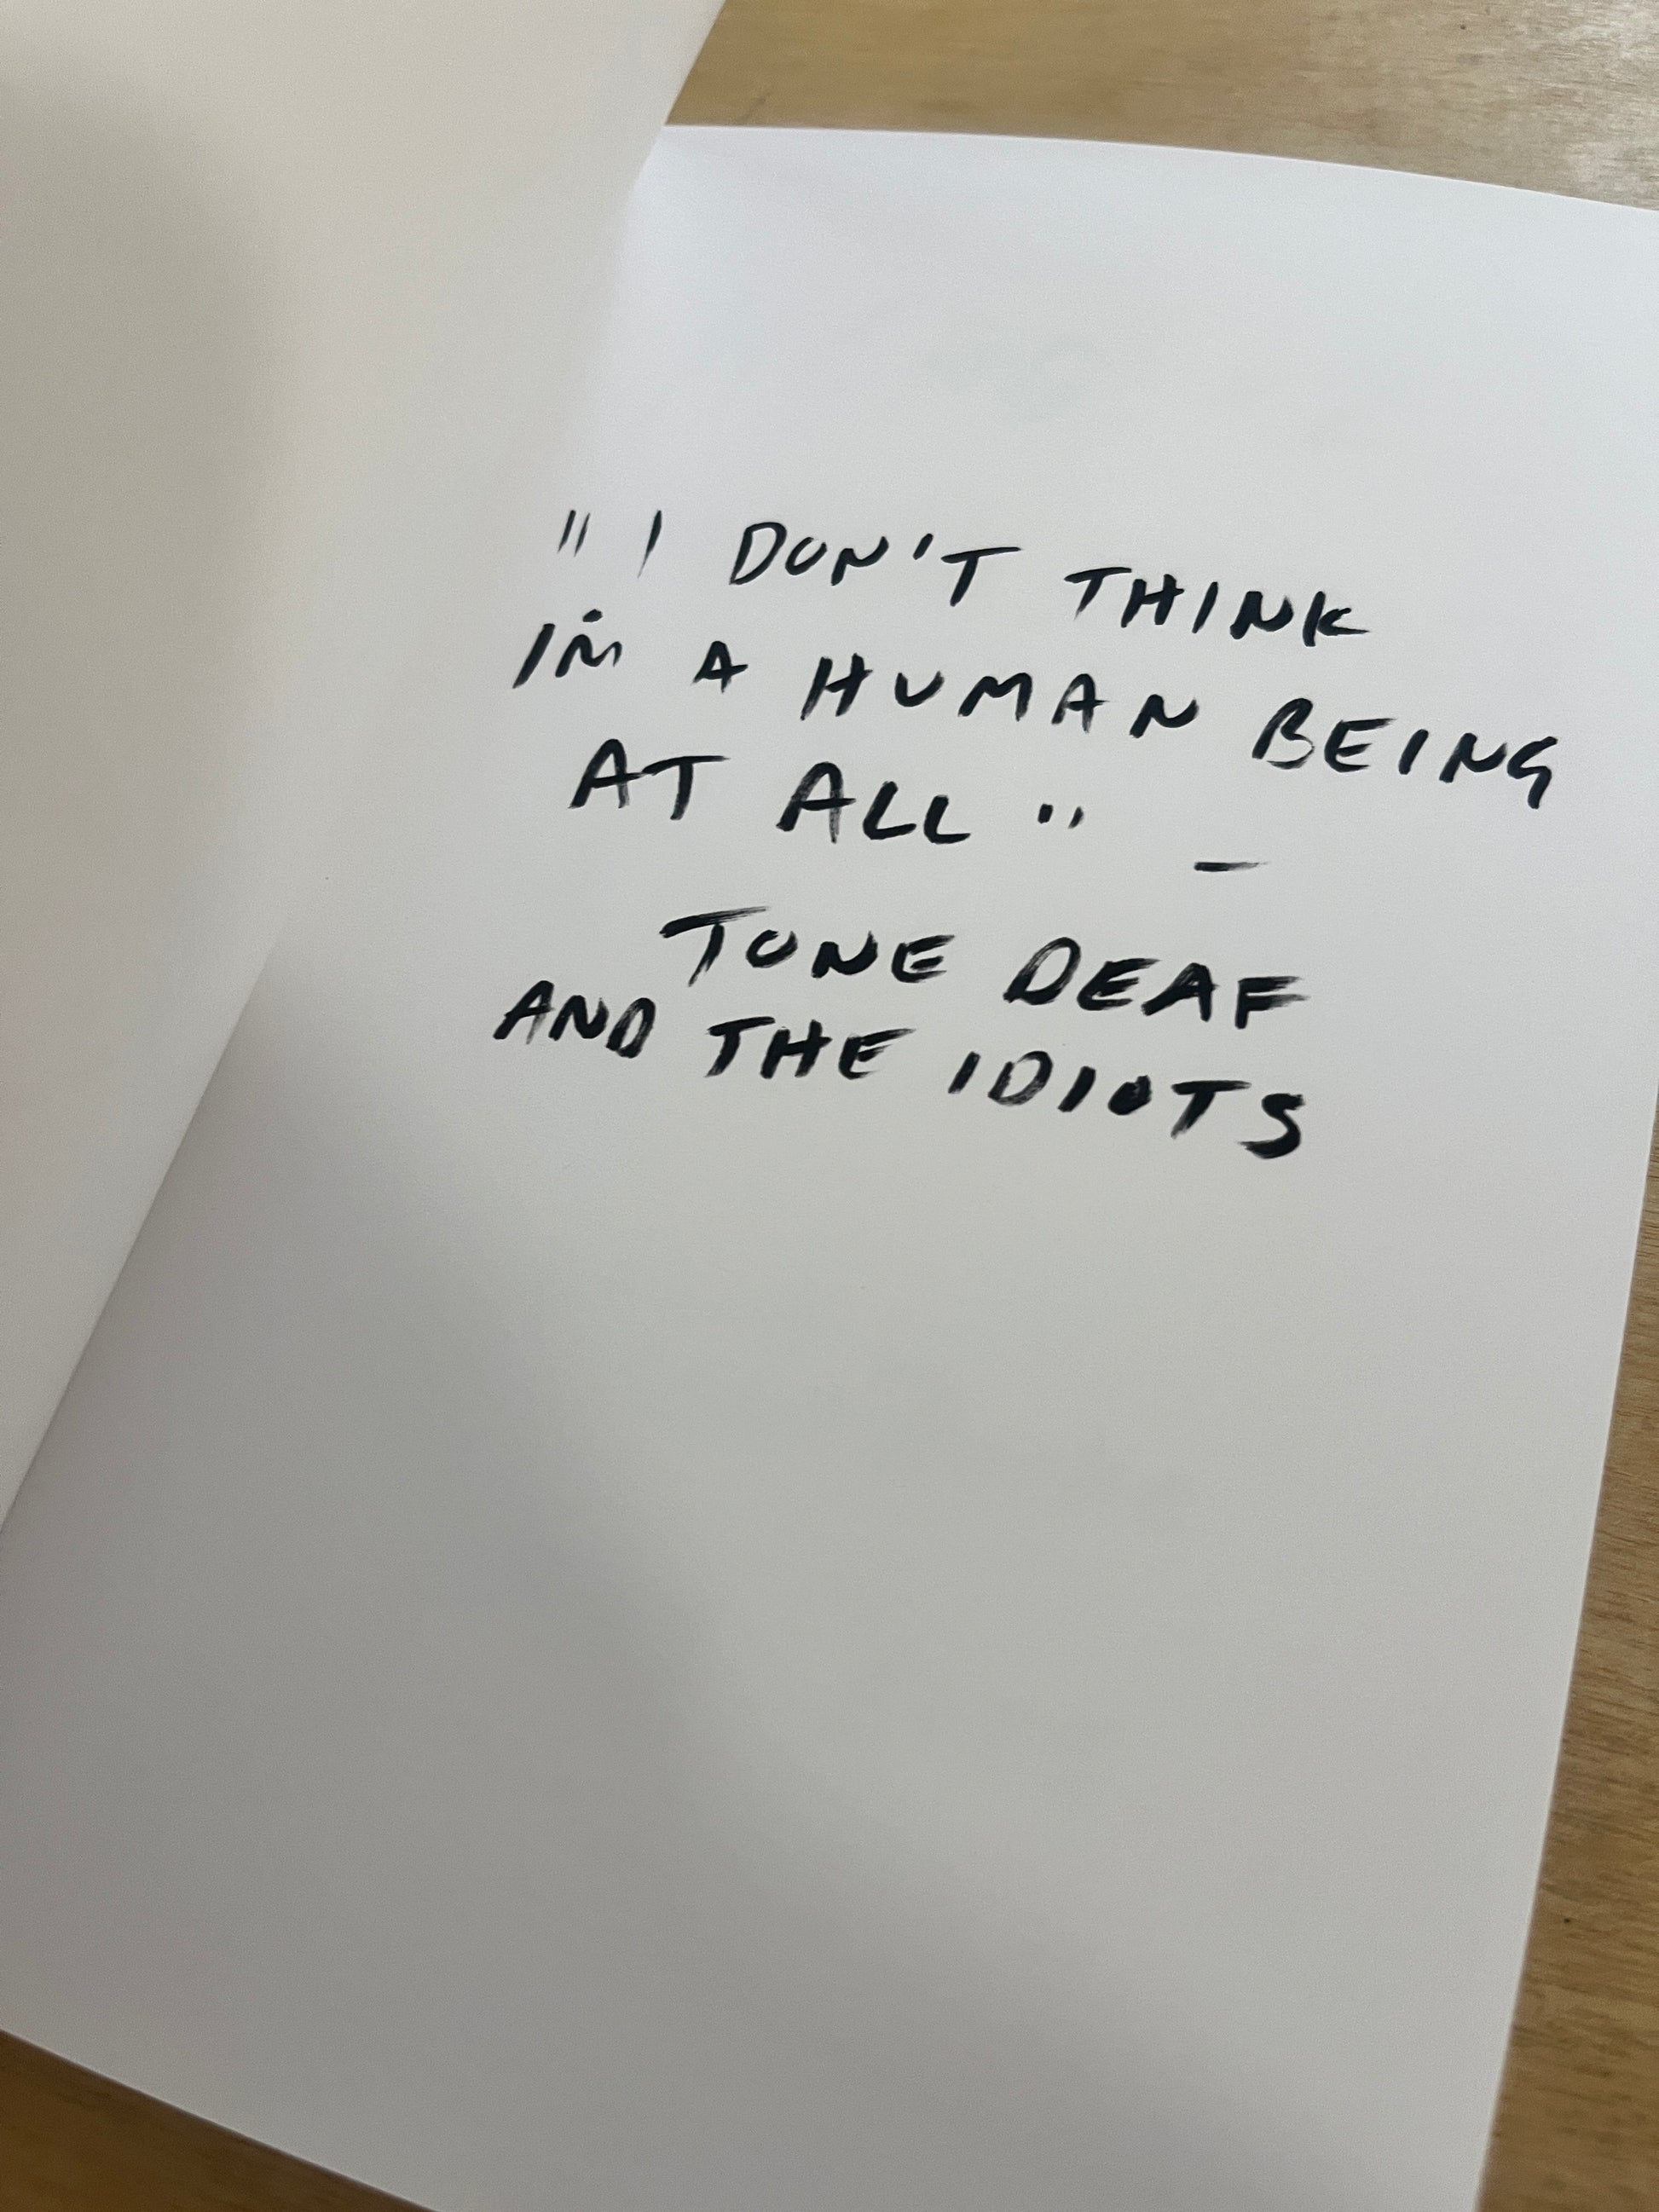 "I DON'T THINK
I'M A HUMAN BEING
AT ALL" –
TONE DEAF
AND THE IDIOTS